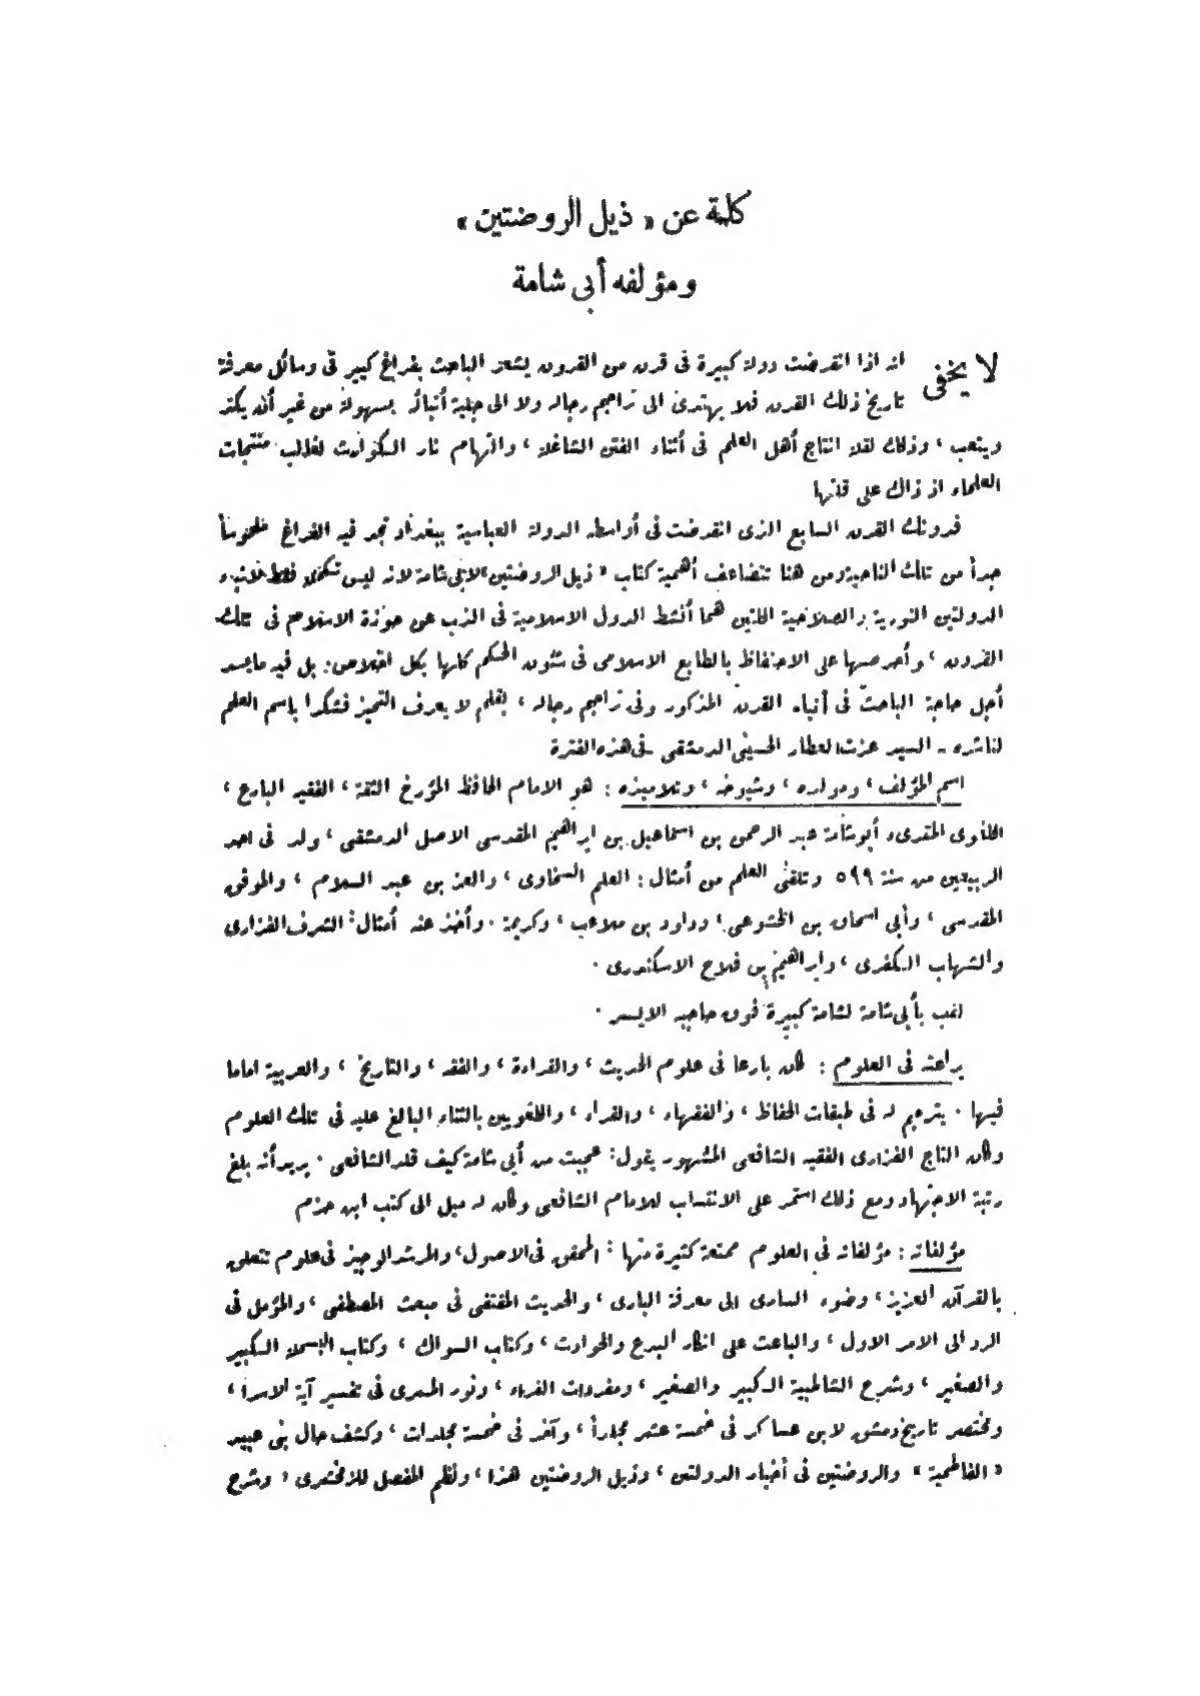 كلمة عن « ذيل الروضتين »
ومؤلفه أبى شامة
لا يخفى انه اذا انقرضت دولة كبيرة فى قرن من القرون يشعر الباحث بفراغ كبير فى وسائل معرفة
تاريخ ذلك القرن فلا يهتدى الى تراجم رجاله ولا الى جلية أنبائه بسهولة من غير أن يكد
ويتعب ، وذلك لقلة انتاج أهل العلم فى أثناء الفتن الشاغلة ، والتهام نار الكوارث لغالب منتجات
العلماء اذ ذاك على قلتها
فدونك القرن السابع الذى انقرضت فى أواسطه الدولة العباسية ببغداد تجد فيه الفراغ ملموساً
جداً من تلك الناحية ومن هنا تتضاعف أهمية كتاب « ذيل الروضتين » لابى شامة لانه ليس تكملة فقط لانباء
الدولتين النورية والصلاحية اللتين هما أنشط الدول الاسلامية فى الذب عن حوزة الاسلام فى تلك
القرون ، وأحرصها على الاحتفاظ بالطابع الاسلامى فى شئون الحكم كلها بكل اخلاص : بل فيه ما يسد
أجل حاجة الباحث فى أنباء القرن المذكور وفى تراجم رجاله ، بقلم لا يعرف التحيز فشكرا باسم العلم
لناشره ـ السيد عزت العطار الحسينى الدمشقى ـ فى هذه الفترة
اسم المؤلف ، ومولده ، وشيوخه ، وتلاميذه : هو الامام الحافظ المؤرخ الثقة ، الفقيه البارع ،
اللغوى المقرىء أبو شامة عبد الرحمن بن اسماعيل بن ابراهيم المقدسى الاصل الدمشقى ، ولد فى احد
الربيعين من سنة ٥٩٩ وتلقى العلم من أمثال : العلم السخاوى ، والعز بن عبد السلام ، والموفق
المقدسى ، وأبى اسحاق بن الخشوعى ، وداود بن ملاعب ، وكريمة . وأخذ عنه أمثال : الشرف الفزارى
والشهاب الكفرى ، وابراهيم بن فلاح الاسكندرى .
لقب بأبى شامة لشامة كبيرة فوق حاجبه الايسر .
براعته فى العلوم : كان بارعا فى علوم الحديث ، والقراءة ، والفقه ، والتاريخ ، والعربية اماما
فيها . يترجم له فى طبقات الحفاظ ، والفقهاء ، والقراء ، واللغويين بالثناء البالغ عليه فى تلك العلوم
وكان التاج الفزارى الفقيه الشافعى المشهور يقول : عجبت من أبى شامة كيف قلد الشافعى . يريد أنه بلغ
رتبة الاجتهاد ومع ذلك استمر على الانتساب للامام الشافعى وكان له ميل الى كتب ابن حزم
مؤلفاته : مؤلفاته فى العلوم ممتعة كثيرة منها : المحقق فى الاصول ، والمرشد الوجيز فى علوم تتعلق
بالقرآن العزيز ، وضوء السارى الى معرفة البارى ، والحديث المقتفى فى مبعث المصطفى ، والمؤمل فى
الرد الى الامر الاول ، والباعث على انكار البدع والحوادث ، وكتاب السواك ، وكتاب البسملة الكبير
والصغير ، وشرح الشاطبية الكبير والصغير ، ومفردات القراء ، ونور المسرى فى تفسير آية الاسرا ،
ومختصر تاريخ دمشق لابن عساكر فى خمسة عشر مجلداً ، وآخر فى خمسة مجلدات ، وكشف حال بنى عبيد
« الفاطمية » والروضتين فى أخبار الدولتين ، وذيل الروضتين هذا ، ونظم المفصل للزمخشرى ، وشرح